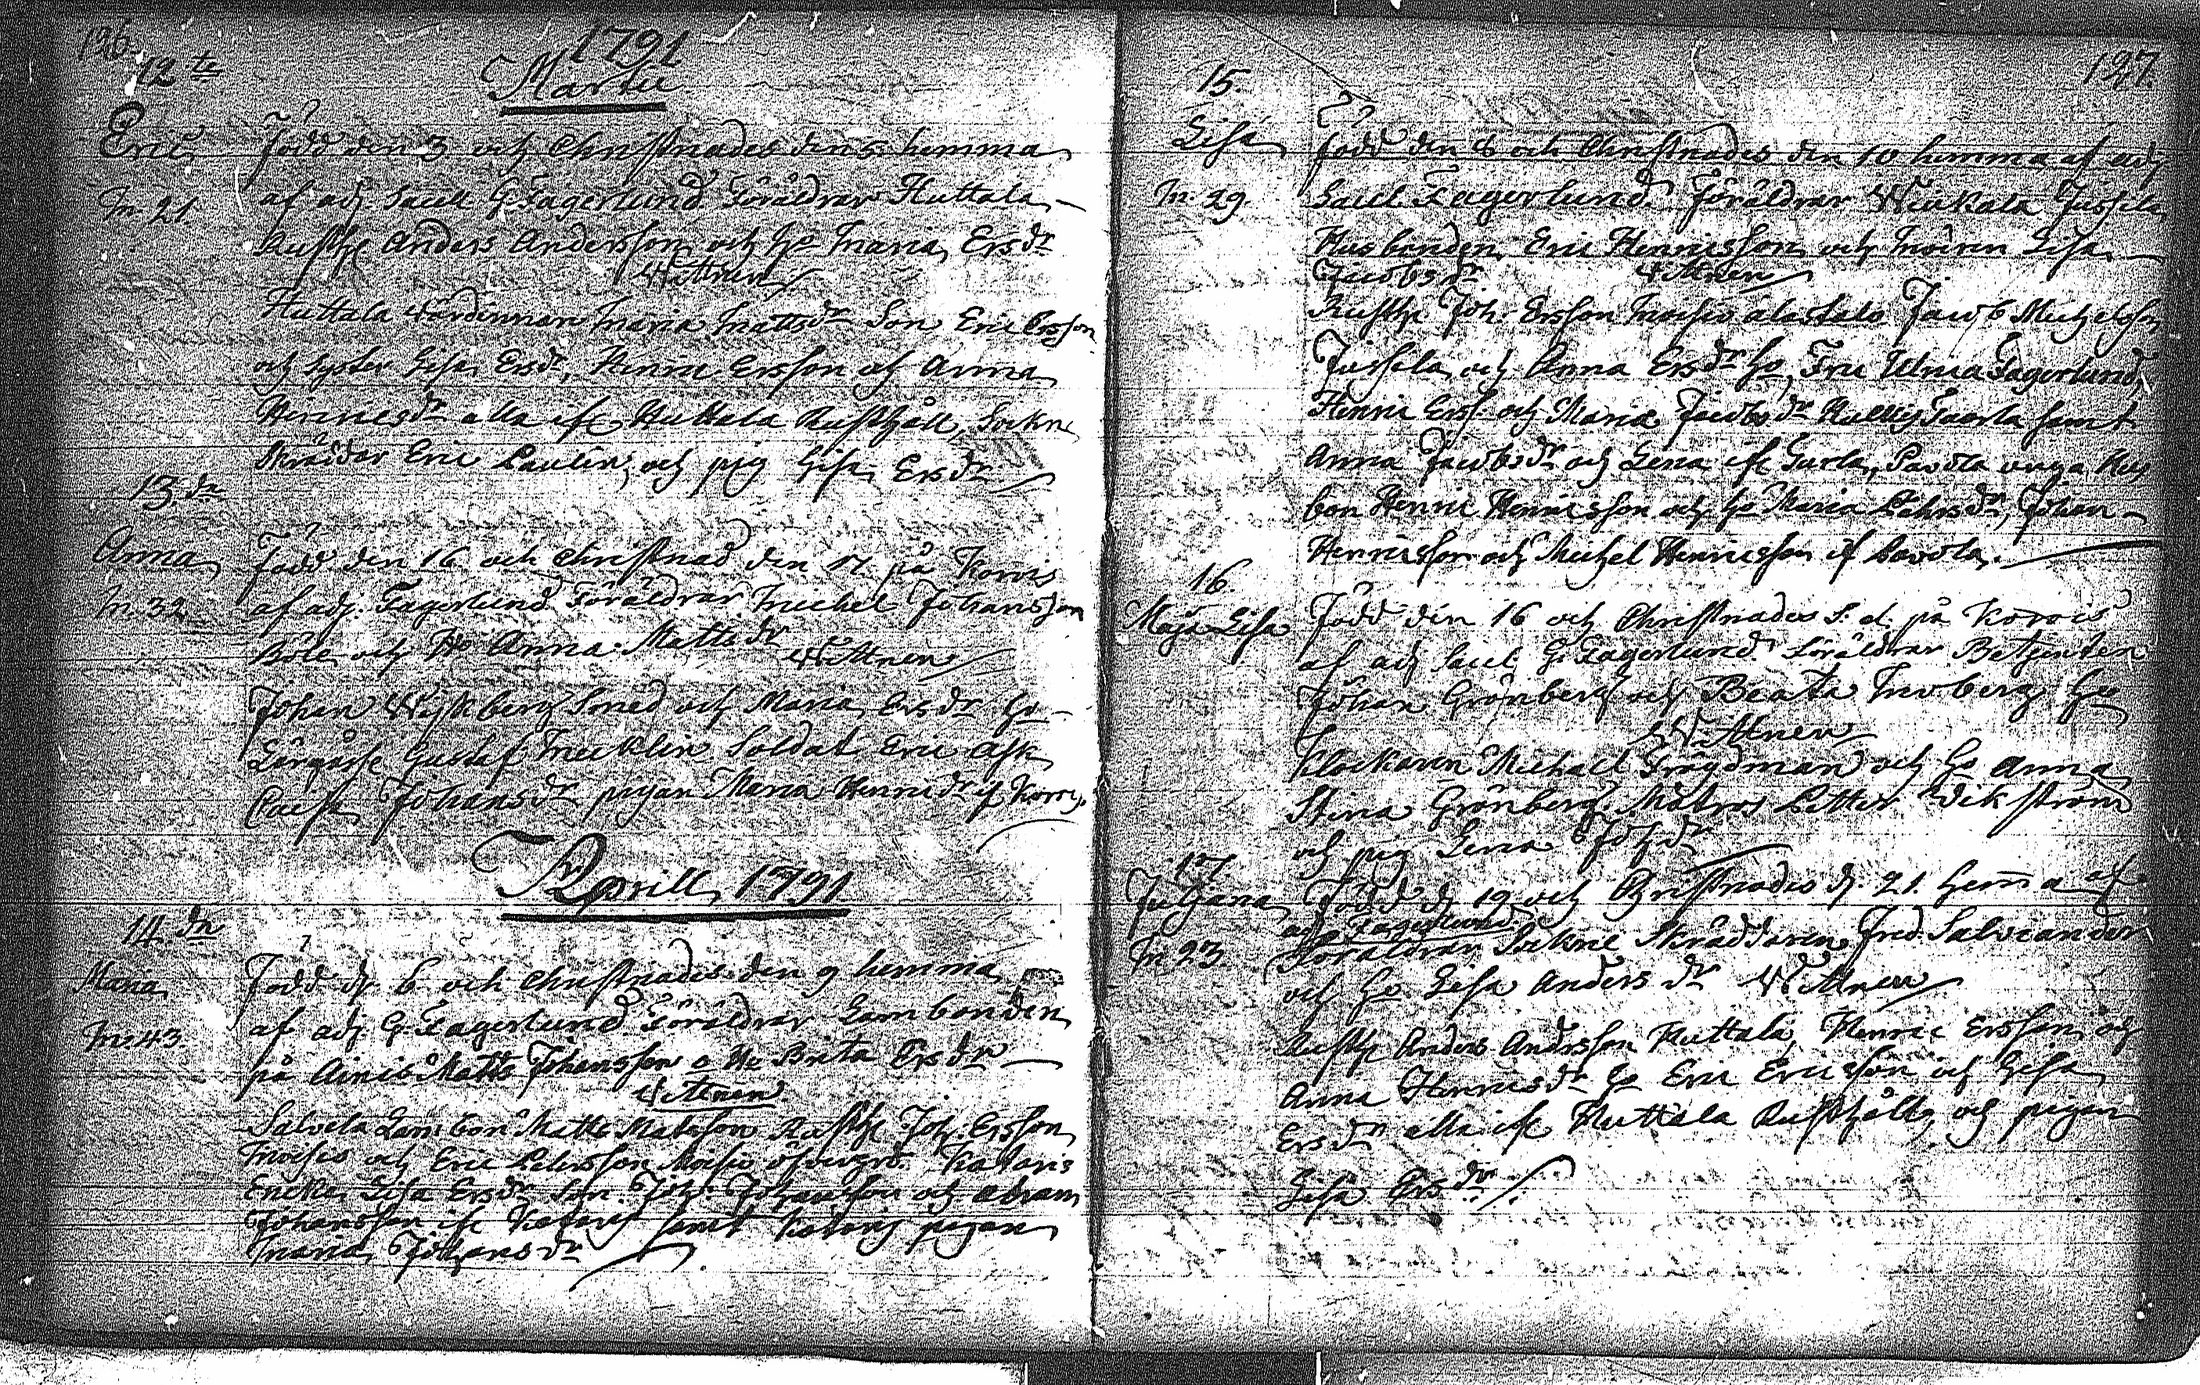 126.
1791
12te
Martii
Eric
Född den 3 och Christnades den 5 hemma
m. 21
af adj Sacell G Fagerlund Föräldrar Huttala
Rusth Anders Andersson och Ho Maria Ersdr
Wittnen
Huttala Wärdinnan Maria Mattsdr Son Eric Ersson
och Syster Lisa Ersdr, Henric Ersson och Anna
Henricsdr alla ifr Huttala Rusthåll, Sockne
Skräddar Eric Paulin, och pig Lisa Ersdr
13.de
Anna
Född den 16 och Christnad den 17 på Korvis
m. 32
af adj. Fagerlund Föräldrar Michel Johansson
Böle och Ho Anna Mattsdr Wittnen
Johan Smed och Maria Ersdr Ho
Gustaf Mecklin Soldat Eric Ask
Caisa Johansdr pigan Maria Henricdr
Aprill 1791
14.de
Maria
Född d. 6 och Christnades den 9 hemma
m: 43
af adj G. Fagerlund Föräldrar Lambonden
på Ainis Matts Johansson o Ho Brita Ersdr
Wittnen
Salvela Lambon Matts Matsson Rusth Joh: Ersson
Moisio och Eric Petersson Moisio
Enckan Lisa Ersdr Son Joh: Johansson och Abram
Johansson ifr samt pigan
Maria Johansdr
127.
15.
Lisa
Född den 8 och Christnades den 10 hemma af adj
m. 29
Sacell Fagerlund Föräldrar Jussila
Husbonden Eric Henricsson och Modren Lisa
Jacobsdr Wittnen
Rusth Joh: Ersson Moisio alastalo Jacob Michelsson
Jussila och Anna Ersdr Ho, Fru Ulrica Fagerlund,
Henric Ers. och Maria Jacobsdr samt
Anna Jacobsdr och Lena ifr Pavola unga Hus
bon Henric Henricsson och Ho Maria Larsdr, Johan
Henricsson och Michel Henricsson if Pavola.
16.
Maja Lisa
Född den 16 och Christnades S. d. på Korvis
af adj Sacel G. Fagerlund Föräldrar Betjenten
Johan Grönberg och Beata Ho
Wittnen
Klockaren Michael och Ho Anna
Stina Grönberg Matros Petter Vikström
och pig Lena Johdr
17
Juljana
Född d. 19 och Christnades d. 21. hema af
adj Fagerlund
m 23
Föräldrar Sockne Skräddaren Fred. Salvecander
och Ho Lisa Andersdr Wittnen
Rusth Anders Andersson Huttala, Henric Ersson och
Anna Henricsdr Ho Eric Ericsson och Lisa
Ersdr alla ifr Huttala Rusthåll, och pigan
Lisa Ersdr